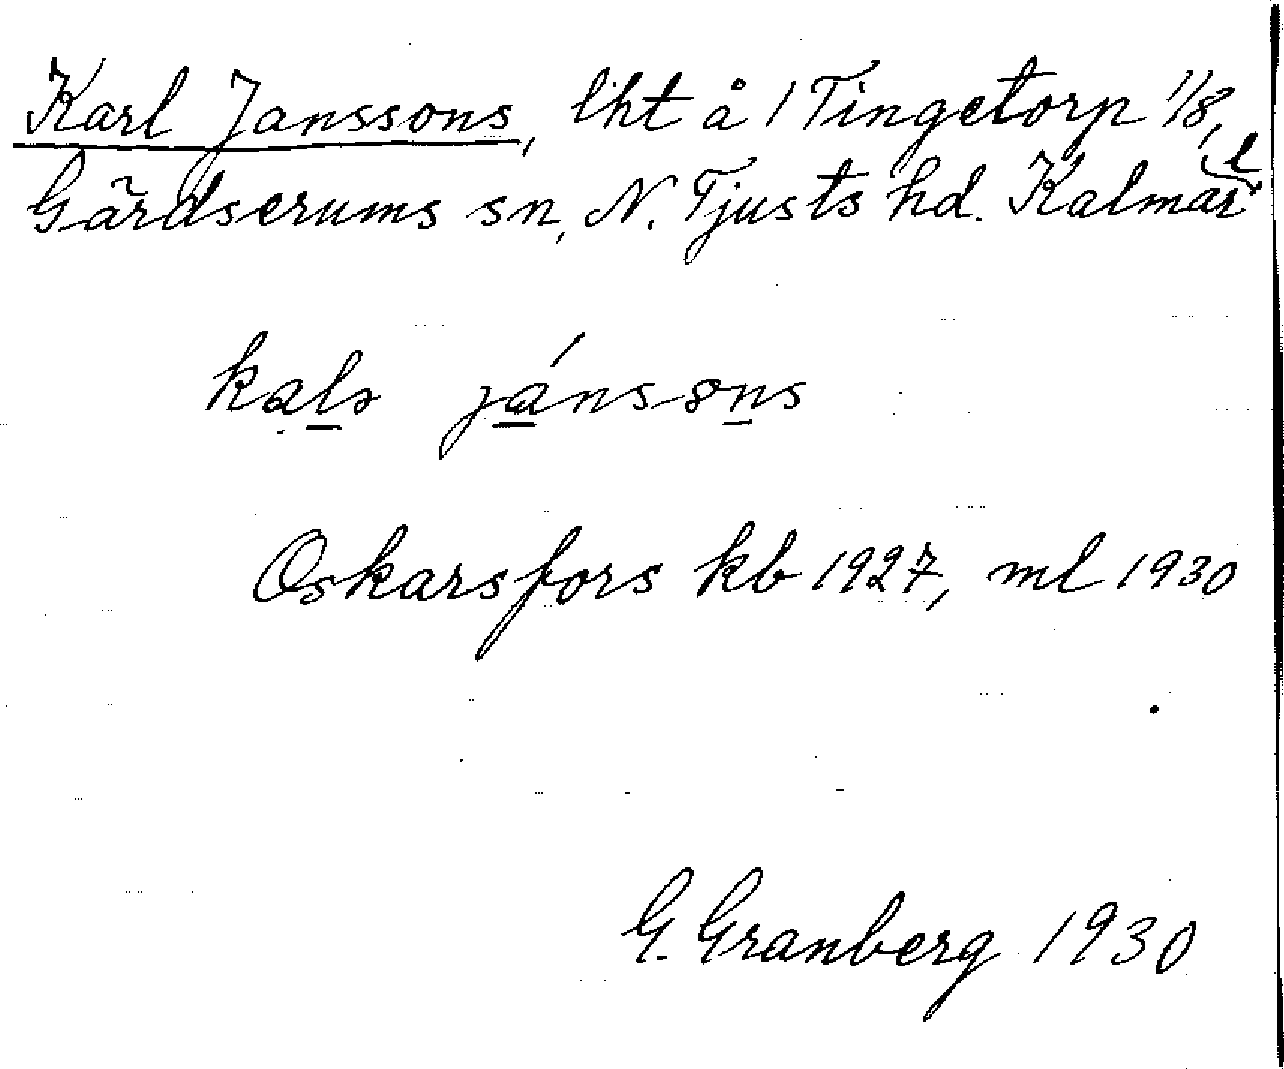 Karl Janssons, lht å 1 Tingetorp 1/8,
Gärdserums sn, N. Tjusts hd. Kalmar l
kals jánssons
Oskarsfors kb 1927, ml 1930
G. Granberg 1930